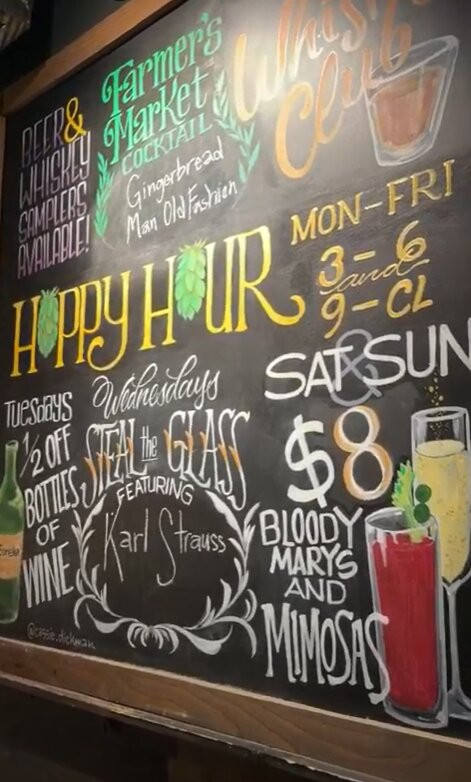 BEER &
WHISKEY
SAMPLERS
AVAILABLE!
Farmer's
Market
COCKTAIL
Gingerbread
Man Old Fashion
Whiskey
Club
HOPPY HOUR
MON-FRI
3-6
and
9-CL
Tuesdays
1/2 OFF
BOTTLES
OF
WINE
Wednesdays
STEAL the GLASS
FEATURING
Karl Strauss
SAT & SUN
$8
BLOODY
MARYS
AND
MIMOSAS
@cassie.dickman